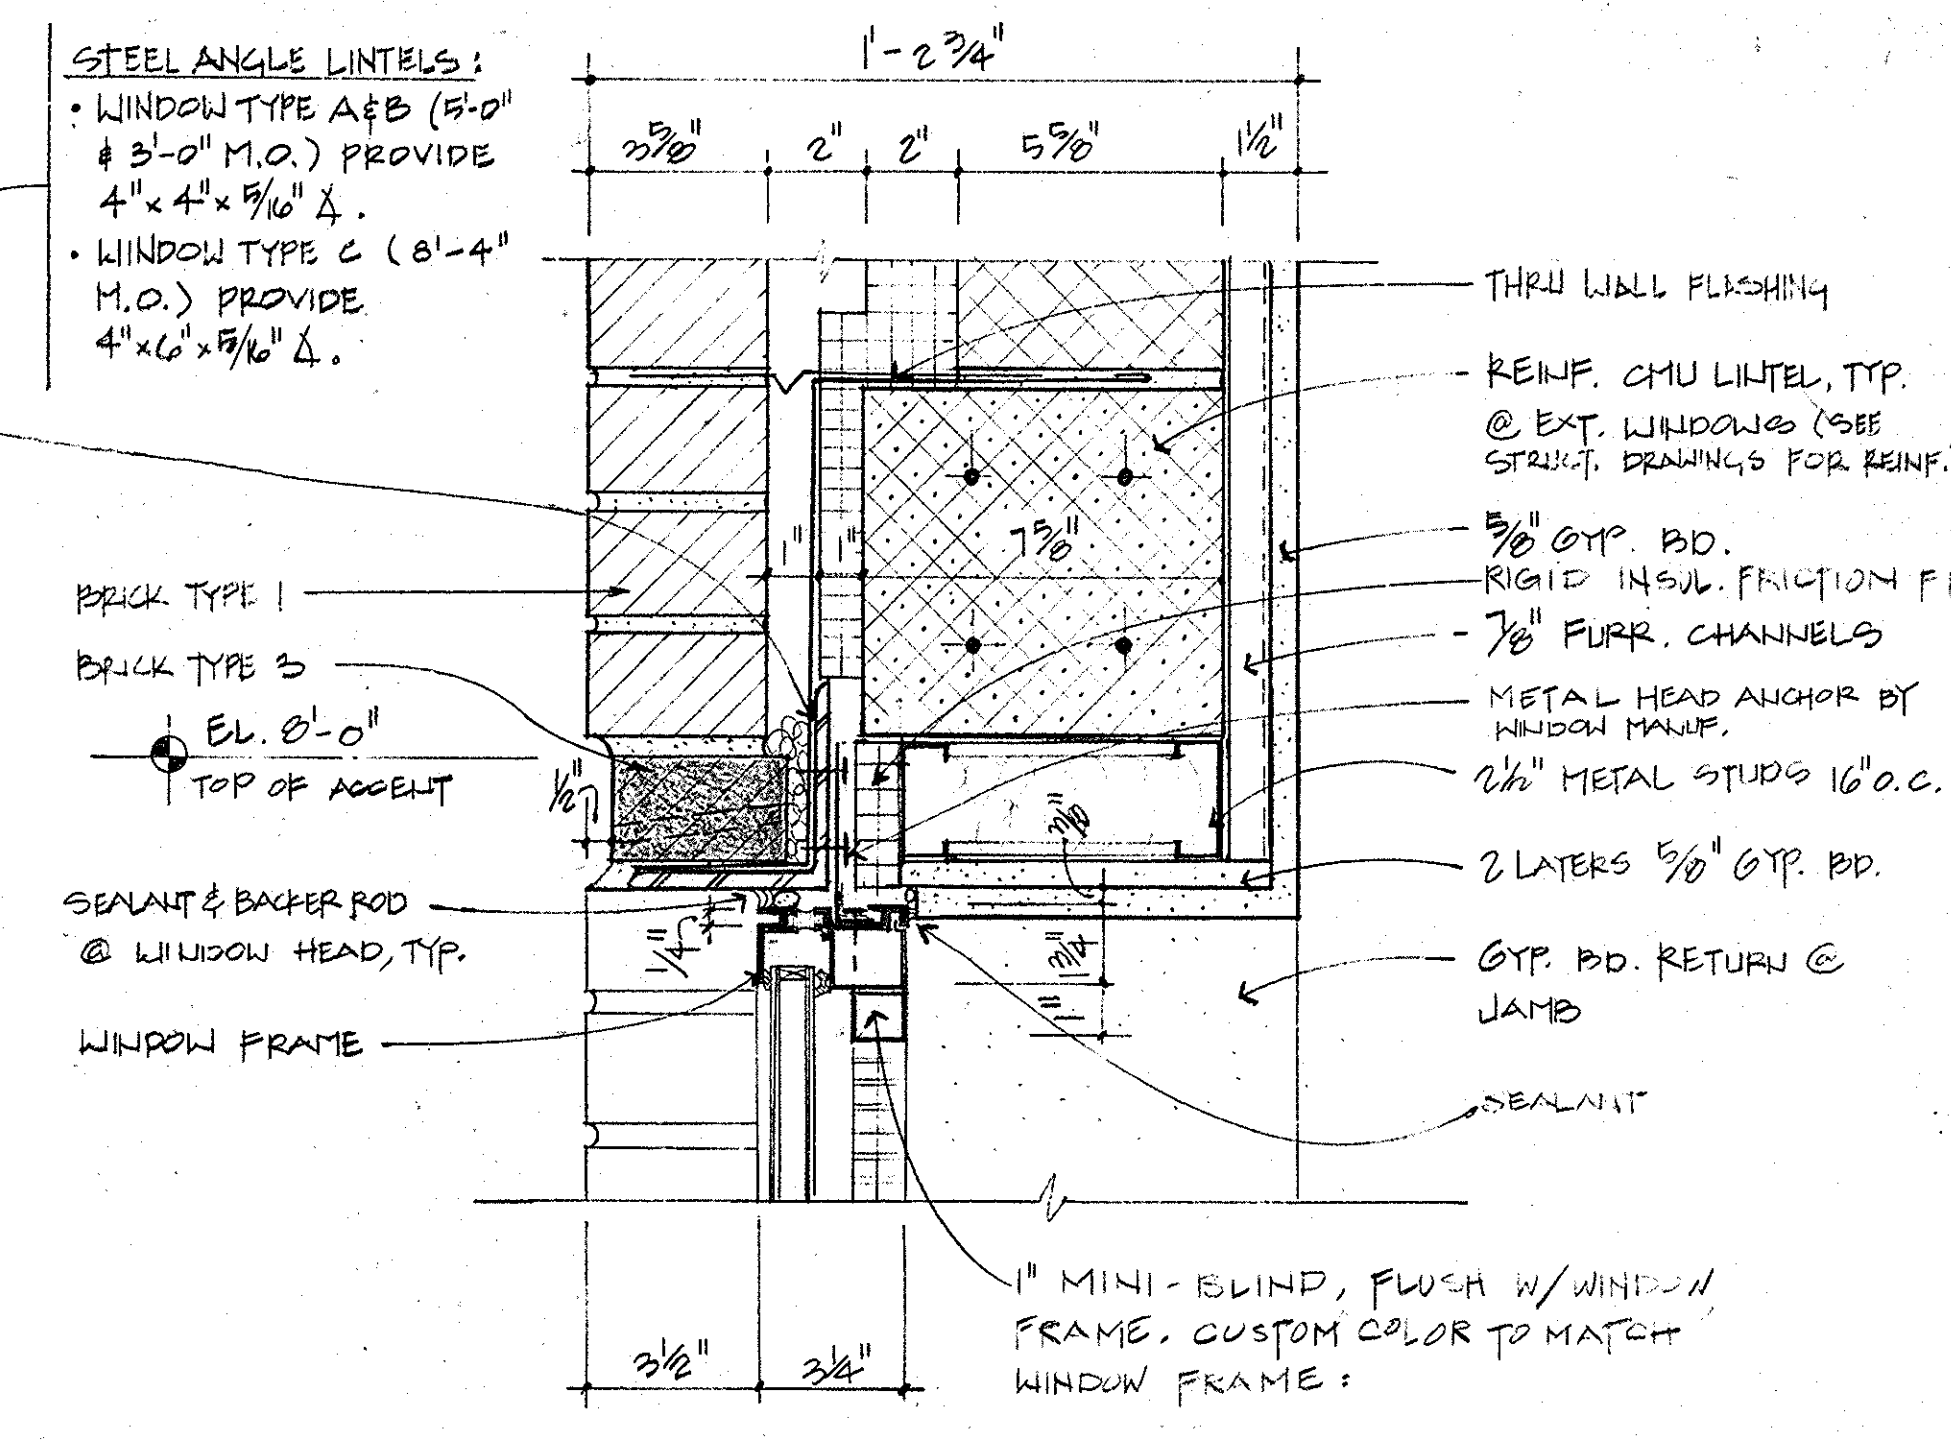 STEEL ANGLE LINTELS:
• WINDOW TYPE A&B (5'-0"
& 3'-0" M.O.) PROVIDE
4"x 4"x 5/16" ∡.
• WINDOW TYPE C (8'-4"
M.O.) PROVIDE
4"x6"x5/16" ∡.
1'-2 3/4"
3 5/8" 2" 2" 5 5/8" 1 1/2"
THRU WALL FLASHING
REINF. CMU LINTEL, TYP.
@ EXT. WINDOWS (SEE
STRUCT. DRAWINGS FOR REINF.
1" 1" 7 5/8"
5/8" GYP. BD.
RIGID INSUL. FRICTION
7/8" FURR. CHANNELS
METAL HEAD ANCHOR BY
WINDOW MANUF.
2 1/2" METAL STUDS 16" O.C.
2 LAYERS 5/8" GYP. BD.
GYP. BD. RETURN @
JAMB
SEALANT
BRICK TYPE 1
BRICK TYPE 3
EL. 8'-0"
TOP OF ACCENT
1/2"
SEALANT & BACKER ROD
@ WINDOW HEAD, TYP.
1/4"
1 1/4"
1"
WINDOW FRAME
1" MINI-BLIND, FLUSH W/WINDOW
FRAME. CUSTOM COLOR TO MATCH
WINDOW FRAME:
3 1/2" 3 1/4"